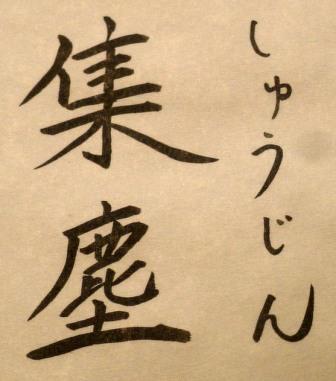 しゅうじん
集塵